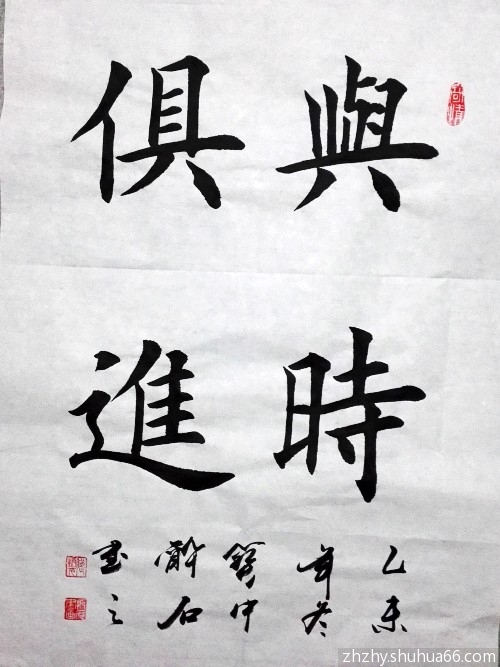 與時
俱進
乙未
年冬
中
石
書之
zhzhy.shuhua66.com